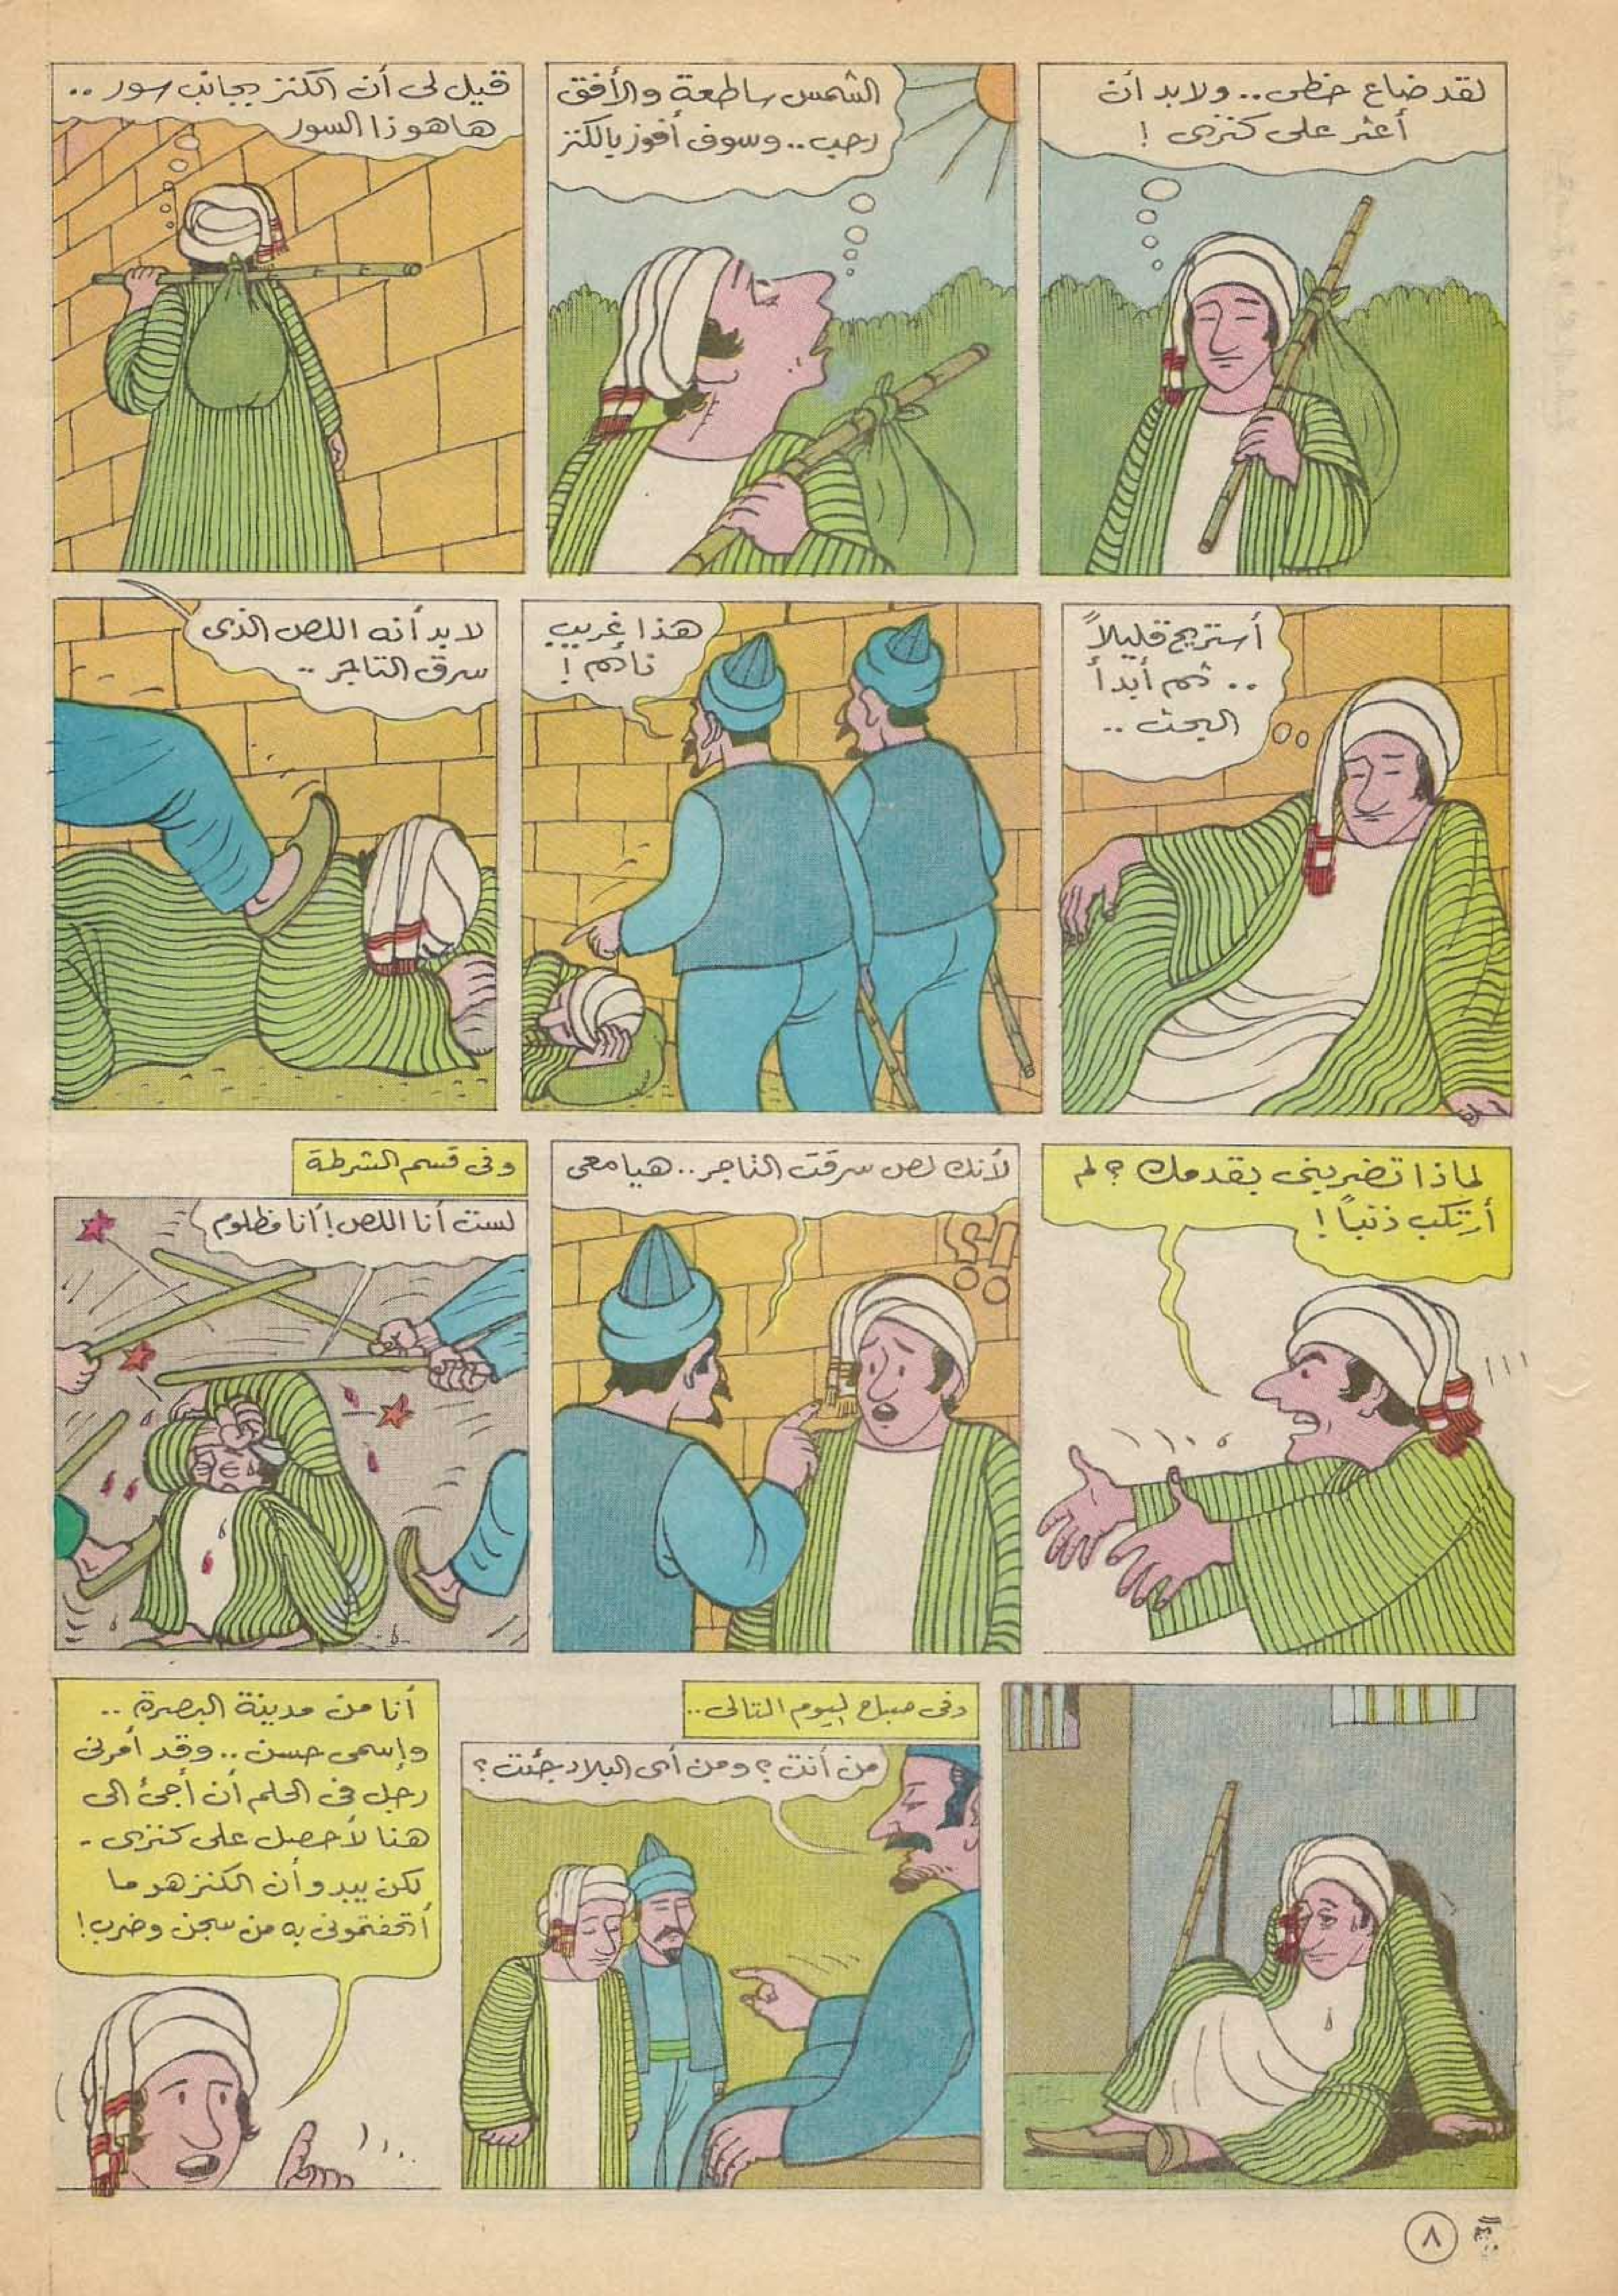 لقد ضاع حظى.. ولابد أن
أعثر على كنزى !
الشمس ساطعة والأفق
رحب.. وسوف أفوز بالكنز
قيل لى أن الكنز بجانب سور ..
هاهوذا السور
أستريح قليلاً
.. ثم أبدأ
البحث ..
هذا غريب
نائم !
لابد أنه اللص الذى
سرق التاجر ..
لماذا تضربنى بقدمك ؟ لم
أرتكب ذنباً !
لأنك لص سرقت التاجر.. هيا معى
؟!
وفى قسم الشرطة
لست أنا اللص! أنا مظلوم
وفى صباح اليوم التالى..
من أنت ؟ ومن أى البلاد جئت ؟
أنا من مدينة البصرة ..
وإسمى حسن .. وقد أمرنى
رجل فى الحلم أن أجئ الى
هنا لأحصل على كنزى -
لكن يبدو أن الكنز هو ما
أتحفتمونى به من سجن وضرب!
٨